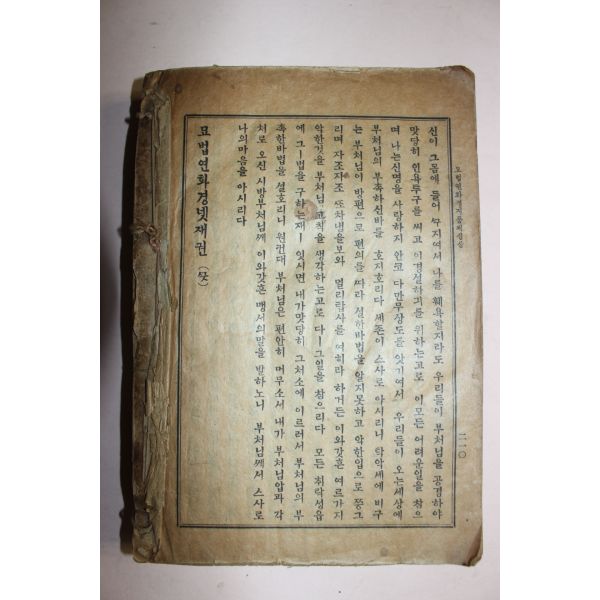 묘법연화경지품제십삼
二一〇
신이 그몸에 들어 꾸지여서 나를 훼욕할지라도 우리들이 부처님을 공경하야
맛당히 인욕투구를 씨고 이경설하기를 위하는고로 이모든 어려운일을 참으
며 나는신명을 사랑하지 안코 다만무상도를 앗기여서 우리들이 오는세상에
부처님의 부촉하신바를 호지호리다 세존이 스사로 아시리니 탁악세에 비구
는 부처님이 방편으로 편의를 따라 설한바법을 알지못하고 악한입으로 쯩그
리며 자조자조 또차냄을보와 멀리탑사를 여히라 하거든 이와갓흔 여르가지
악한것을 부처님 교칙을 생각하는고로 다ㅡ그일을 참으리다 모든 취락성읍
에 그ㅣ법을 구하는재ㅣ 잇시면 내가맛당히 그처소에 이르러서 부처님의 부
촉한바법을 설호리니 원컨대 부처님은 편안히 머무소서 내가 부처님압과 각
처로 오신 시방부처님께 이와갓흔 맹서의말을 발하노니 부처님께서 스사로
나의마음을 아시리다
묘법연화경넷재권 (끗)